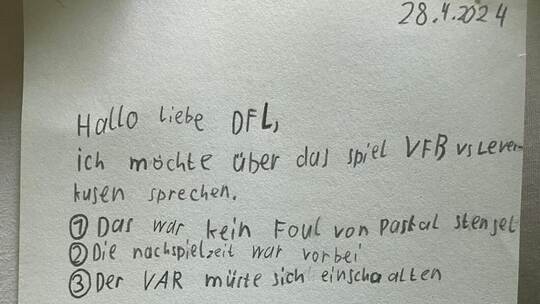 28.4.2024
Hallo liebe DFL,
ich möchte über das spiel VFB vs Lever-
kusen sprechen.
① Das war kein Foul von Paskal stensel
② Die nachspielzeit war vorbei
③ Der VAR mürte sich einschaalten